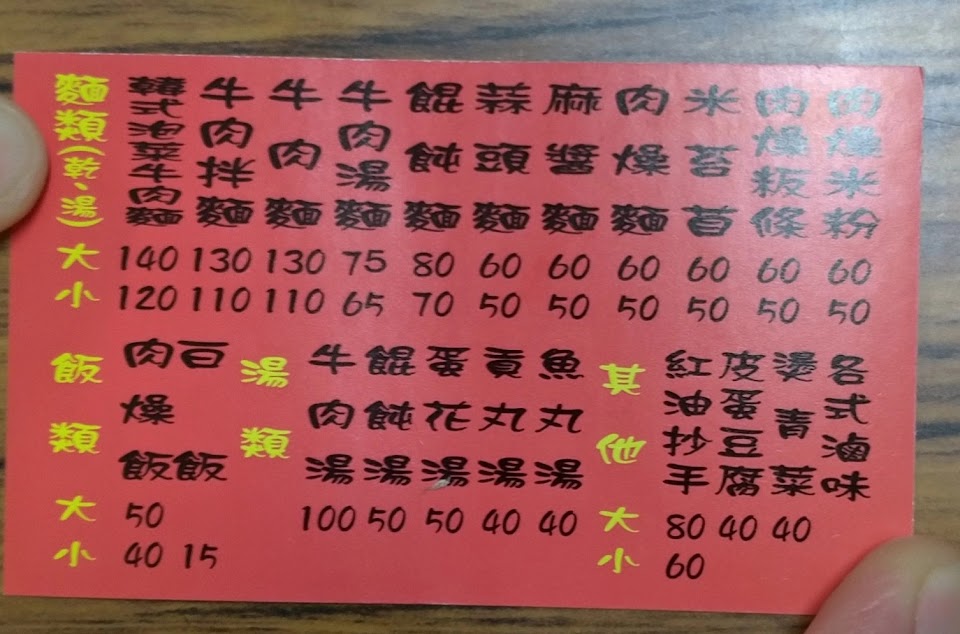 麵類(乾、湯) 大 小
韓式泡菜牛肉麵 140 120
牛肉拌麵 130 110
牛肉麵 130 110
牛肉湯麵 75 65
餛飩麵 80 70
蒜頭麵 60 50
麻醬麵 60 50
肉燥麵 60 50
米苔苜 60 50
肉燥粄條 60 50
肉燥米粉 60 50
飯類 大 小
肉燥飯 50 40
白飯 15
湯類
牛肉湯 100
餛飩湯 50
蛋花湯 50
貢丸湯 40
魚丸湯 40
其他 大 小
紅油抄手 80 60
皮蛋豆腐 40
燙青菜 40
各式滷味